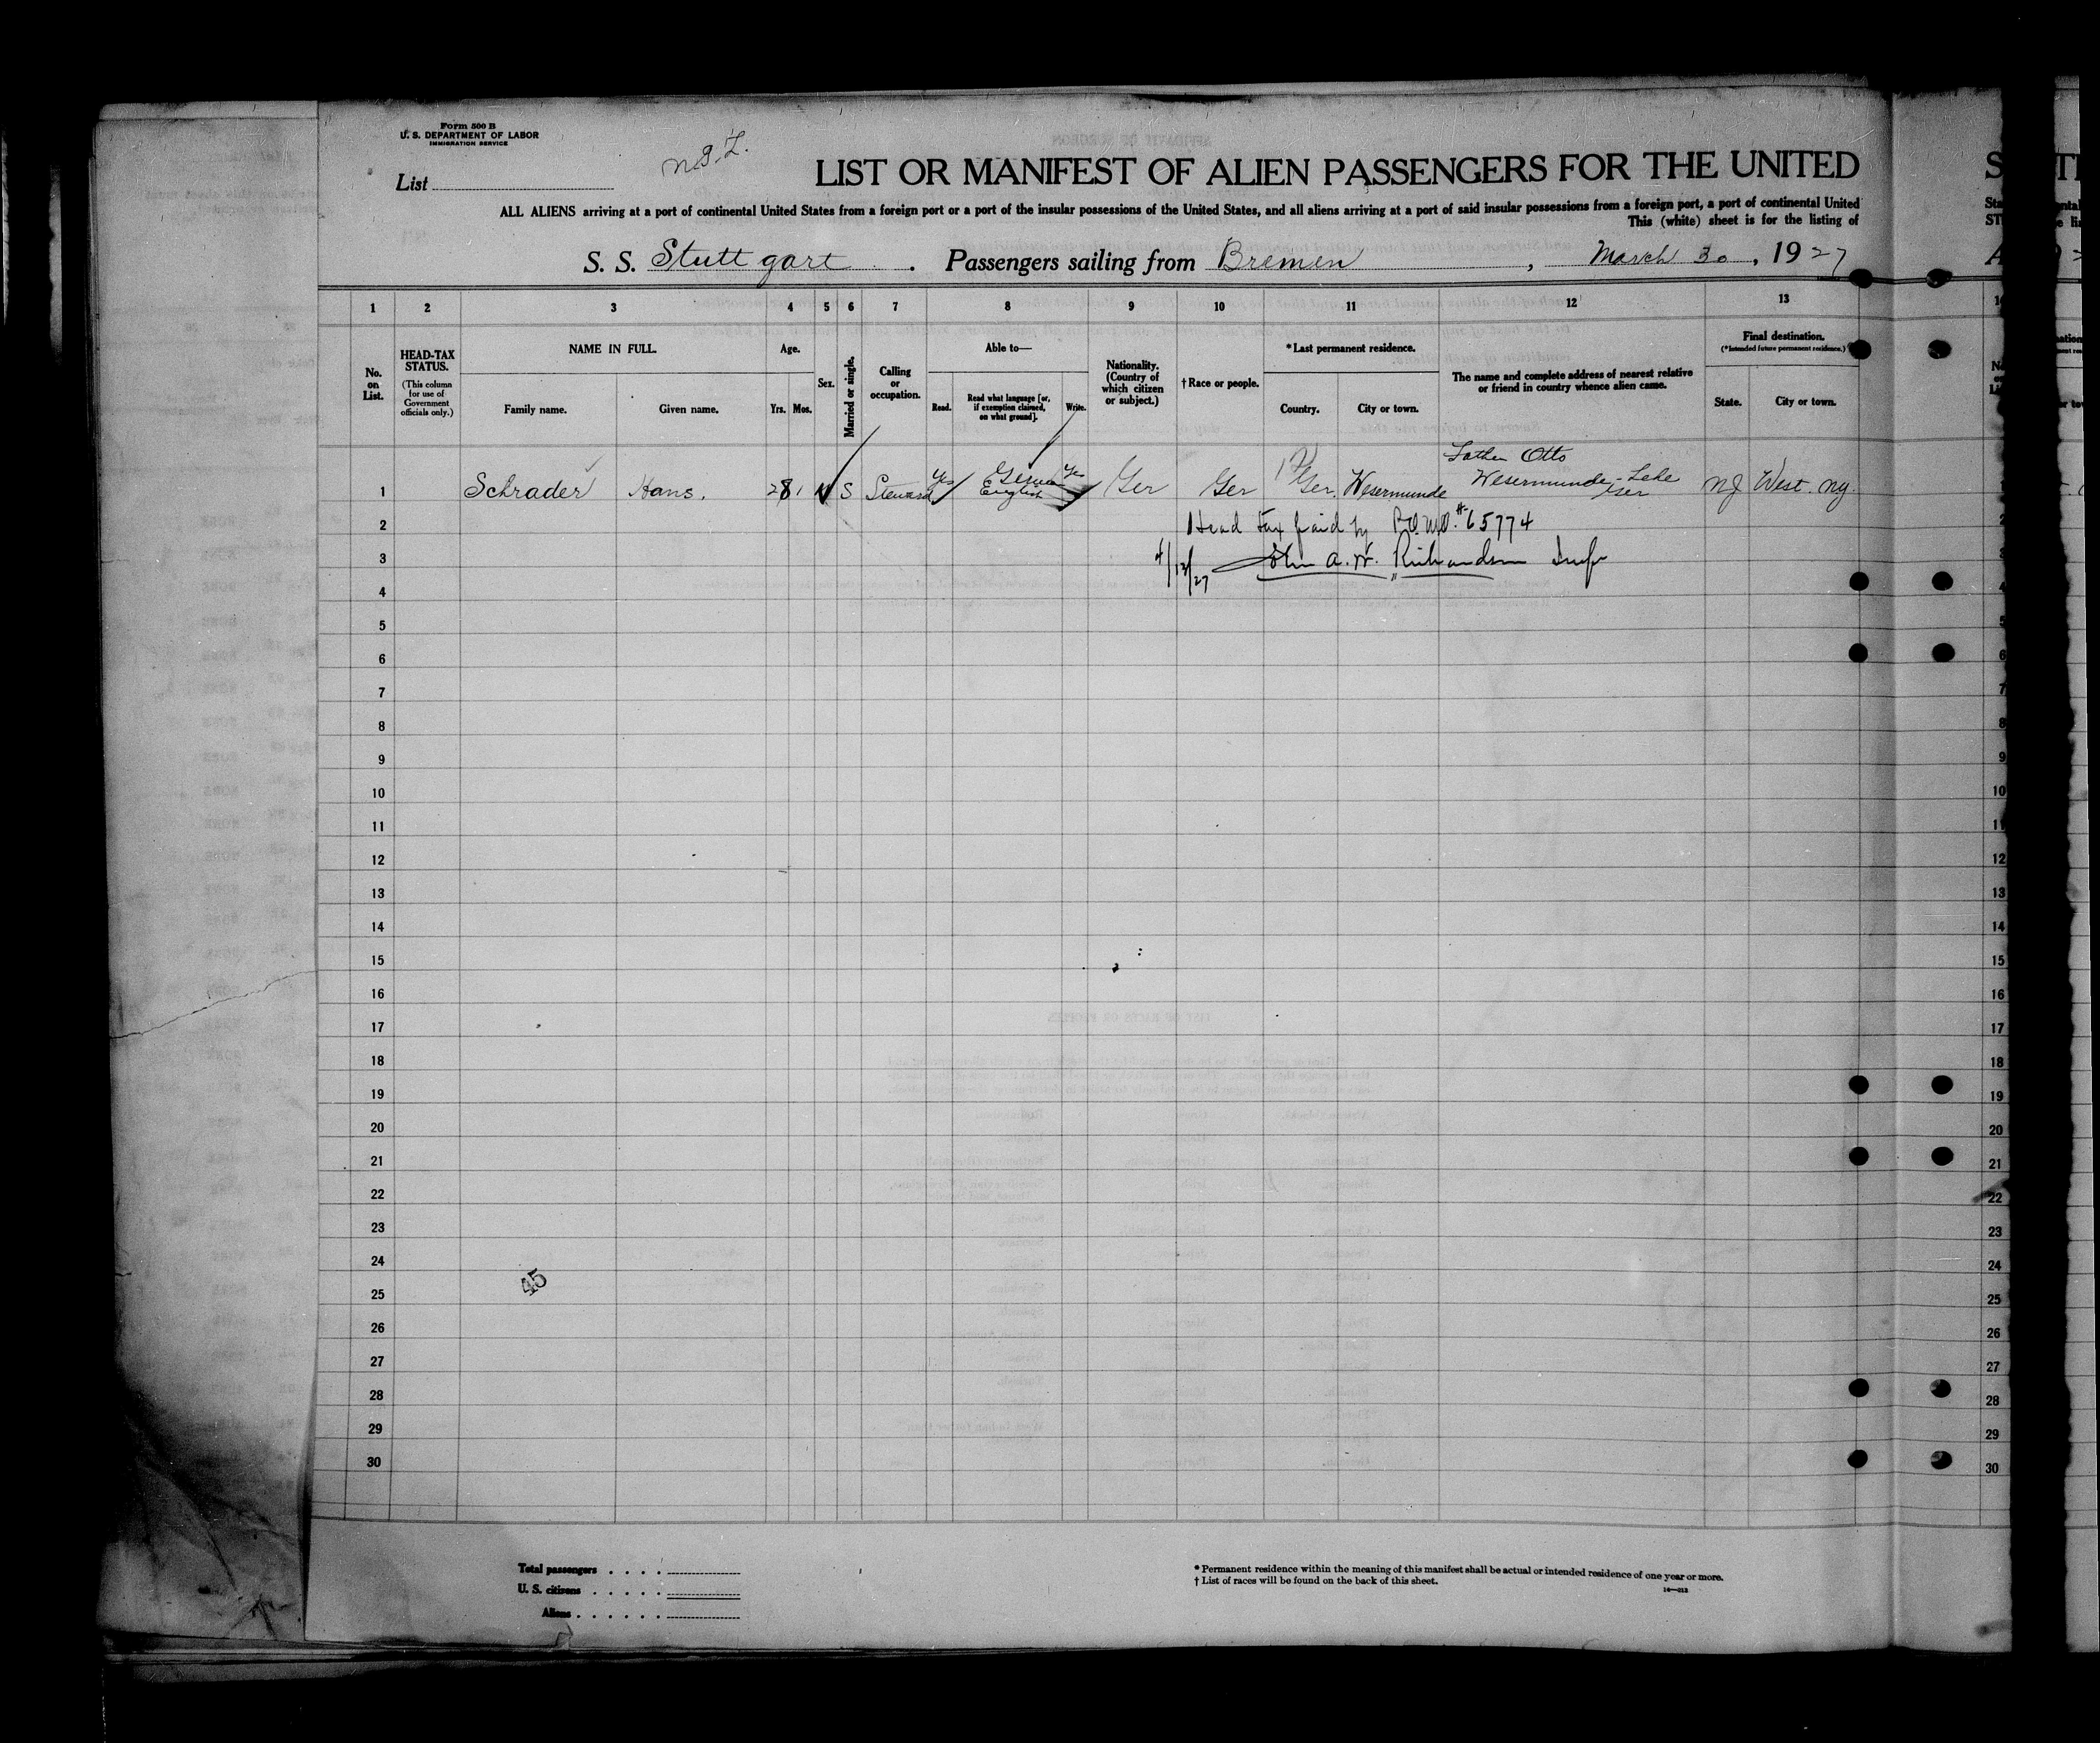 Form 500 B
U. S. DEPARTMENT OF LABOR
IMMIGRATION SERVICE
N.G.L.
List
LIST OR MANIFEST OF ALIEN PASSENGERS FOR THE UNITED
ALL ALIENS arriving at a port of continental United States from a foreign port or a port of the insular possessions of the United States, and all aliens arriving at a port of said insular possessions from a foreign port, a port of continental United
This (white) sheet is for the listing of
S. S. Stuttgart . Passengers sailing from Bremen , March 30 , 1927
1 2 3 4 5 6 7 8 9 10 11 12 13
No. on List.
HEAD-TAX STATUS.
(This column for use of Government officials only.)
NAME IN FULL.
Family name. Given name.
Age.
Yrs. Mos.
Sex.
Married or single.
Calling or occupation.
Able to—
Read. Read what language [or, if exemption claimed, on what ground]. Write.
Nationality. (Country of which citizen or subject.)
†Race or people.
*Last permanent residence.
Country. City or town.
The name and complete address of nearest relative or friend in country whence alien came.
Final destination.
(*Intended future permanent residence.)
State. City or town.
Father Otto
1 Schrader Hans. 28 M S Steward Yes German English Yes Ger Ger Ger. Wesermunde Wesermunde-Lehe Ger NJ West. NY.
2 Head Tax paid by P.O. M.O. # 65774
3 4/12/27 John A. W. Richardson Insp
4
5
6
7
8
9
10
11
12
13
14
15
16
17
18
19
20
21
22
23
24
45
25
26
27
28
29
30
Total passengers . . . .
U. S. citizens . . . . .
Aliens . . . . . .
* Permanent residence within the meaning of this manifest shall be actual or intended residence of one year or more.
† List of races will be found on the back of this sheet.